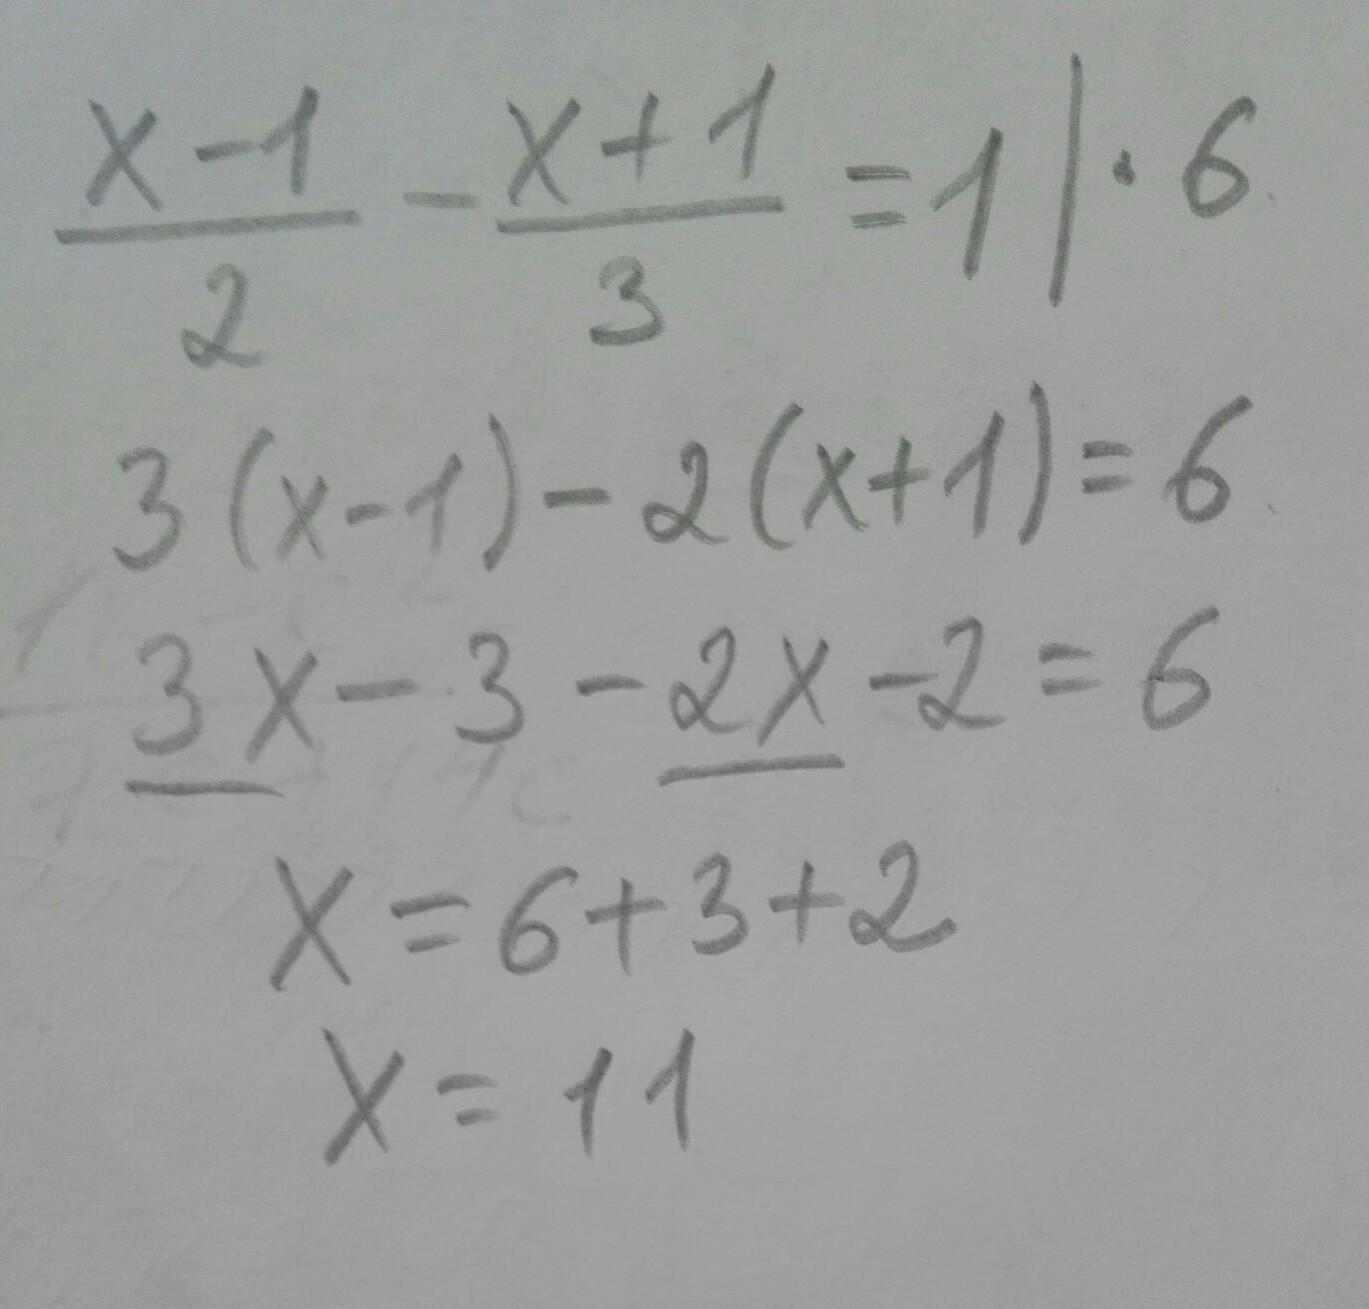 x-1/2 - x+1/3 = 1 | · 6
3(x-1) - 2(x+1) = 6
3x - 3 - 2x - 2 = 6
x = 6 + 3 + 2
x = 11